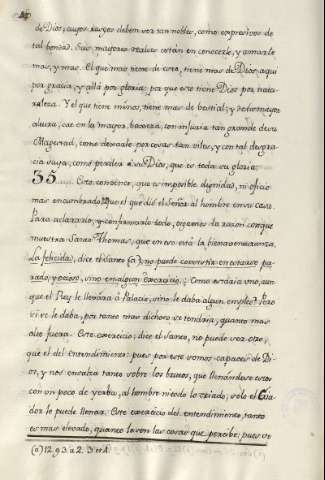 de Dios; cuyos rasgos deben ser tan nobles, como expresivos de
tal bondad. Sus mayores realces están en conocerle, y amarle
mas, y mas. El que mas tiene de esto, tiene mas de Dios, aqui
por gracia, y allá por gloria; pa que este tiene Dios por natu-
raleza. Y el que tiene menos, tiene mas de bestial; y de tu mayor
altura, cae en la mayor, baxeza, con injuria tan grande de su
Magestad, como dexarle por cosas tan viles, y con tal desgra-
cia suya, como perder á su Dios, que es toda su gloria.
35. Esto conocerse, que es imposible dignidad, ni oficio
mas encumbrado que el que dió el Señor al hombre en su casa.
Para aclararlo, y confirmarlo todo, oigamos la razon con que
nuestra Santo Thomas, que en eso está la bienaventuranza.
La felicidad, dice el Santo (a) no puede consistir en estarse pa-
rado, y ocioso, sino en algun exercicio. Como estaria uno, aun-
que el Rey le llevára á Palacio, sino le daba algun empleo? Pero
si se le daba, por tanto mas dichoso se tendria, quanto mas
alto fuera. Este exercicio, dice el Santo, no puede ser otro,
que el del Entendimiento: pues por este somos capaces de Di-
os, y nos ensalza tanto sobre los brutos, que llenándose estos
con un poco de yerba, al hombre ni todo lo criado; solo el Cria-
dor le puede llenar. Este exercicio del entendimiento, tanto
es mas elevado, quanto lo son las cosas que percibe; pues se
(a) 12. q. 3. a. 2. 3. et 4.